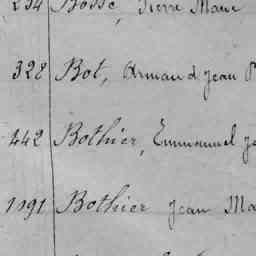 234 Bossé, Pierre Marie
328 Bot, Armand Jean P
442 Bothier, Emmanuel Je
1191 Bothier Jean Ma